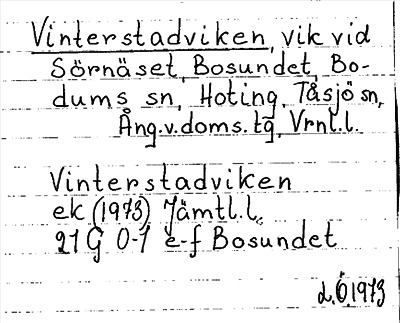 Vinterstadviken, vik vid
Sörnäset, Bosundet, Bo-
dums sn, Hoting, Tåsjö sn,
Ång.v.doms.tg, Vrnl.l.
Vinterstadviken
ek (1973) Jämtl.l.
21 G 0-1 e-f Bosundet
L.Ö.1973